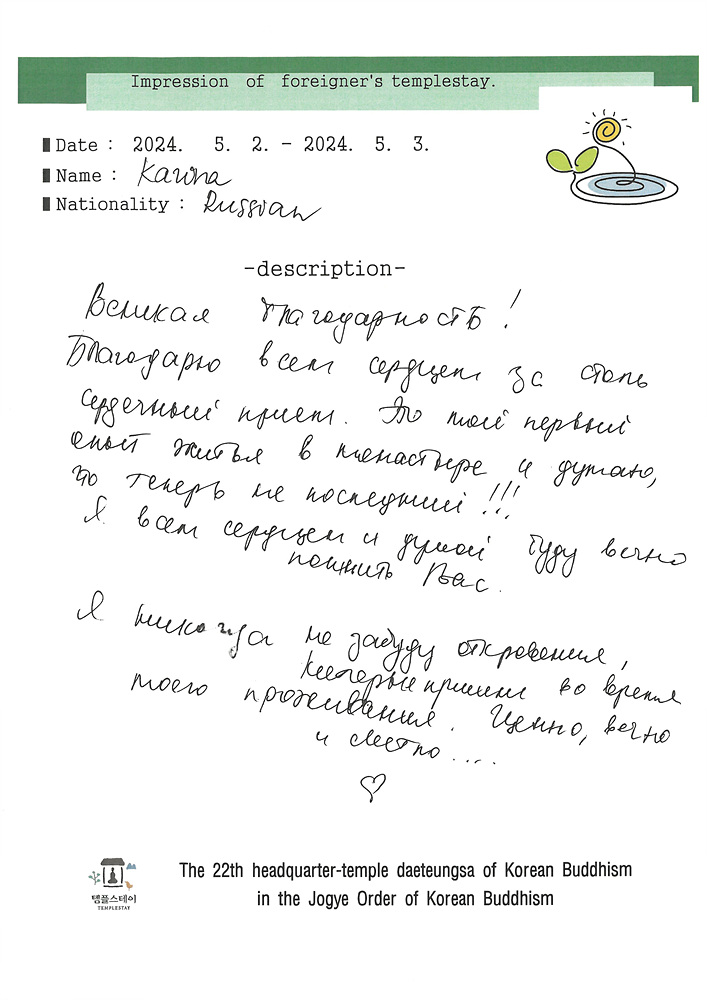 Impression of foreigner's templestay.
Date : 2024. 5. 2. - 2024. 5. 3.
Name : Karina
Nationality : Russian
-description-
Великая благодарность!
Благодарю всем сердцем за столь
сердечный прием. Это мой первый
опыт житья в монастыре и думаю,
что теперь не последний!!!
Я всем сердцем и душой буду вечно
помнить Вас.
Я никогда не забуду откровения,
которые пришли во время
моего проживания. Ценно, вечно
и светло....
템플스테이
TEMPLESTAY
The 22th headquarter-temple daeteungsa of Korean Buddhism
in the Jogye Order of Korean Buddhism